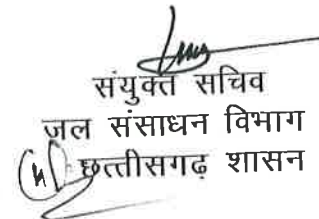 संयुक्त सचिव
जल संसाधन विभाग
छत्तीसगढ़ शासन